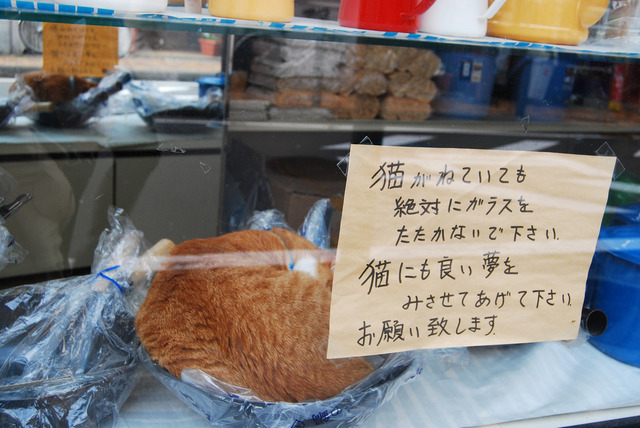 猫がねていても
絶対にガラスを
たたかないで下さい.
猫にも良い夢を
みさせてあげて下さい.
お願い致します